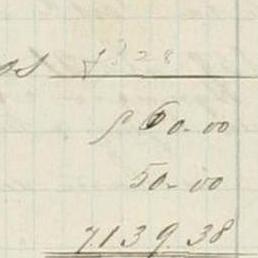 os $328
$60-00
50-00
7139.38